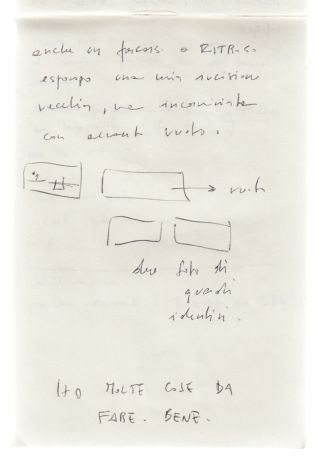 anche un forcone. o RITR.so
espongo una mia incisione
vecchia, ne incornicerò
con accanto vuoto.
→ vuoto
due foto di
quadri
identici.
HO MOLTE COSE DA
FARE. BENE.